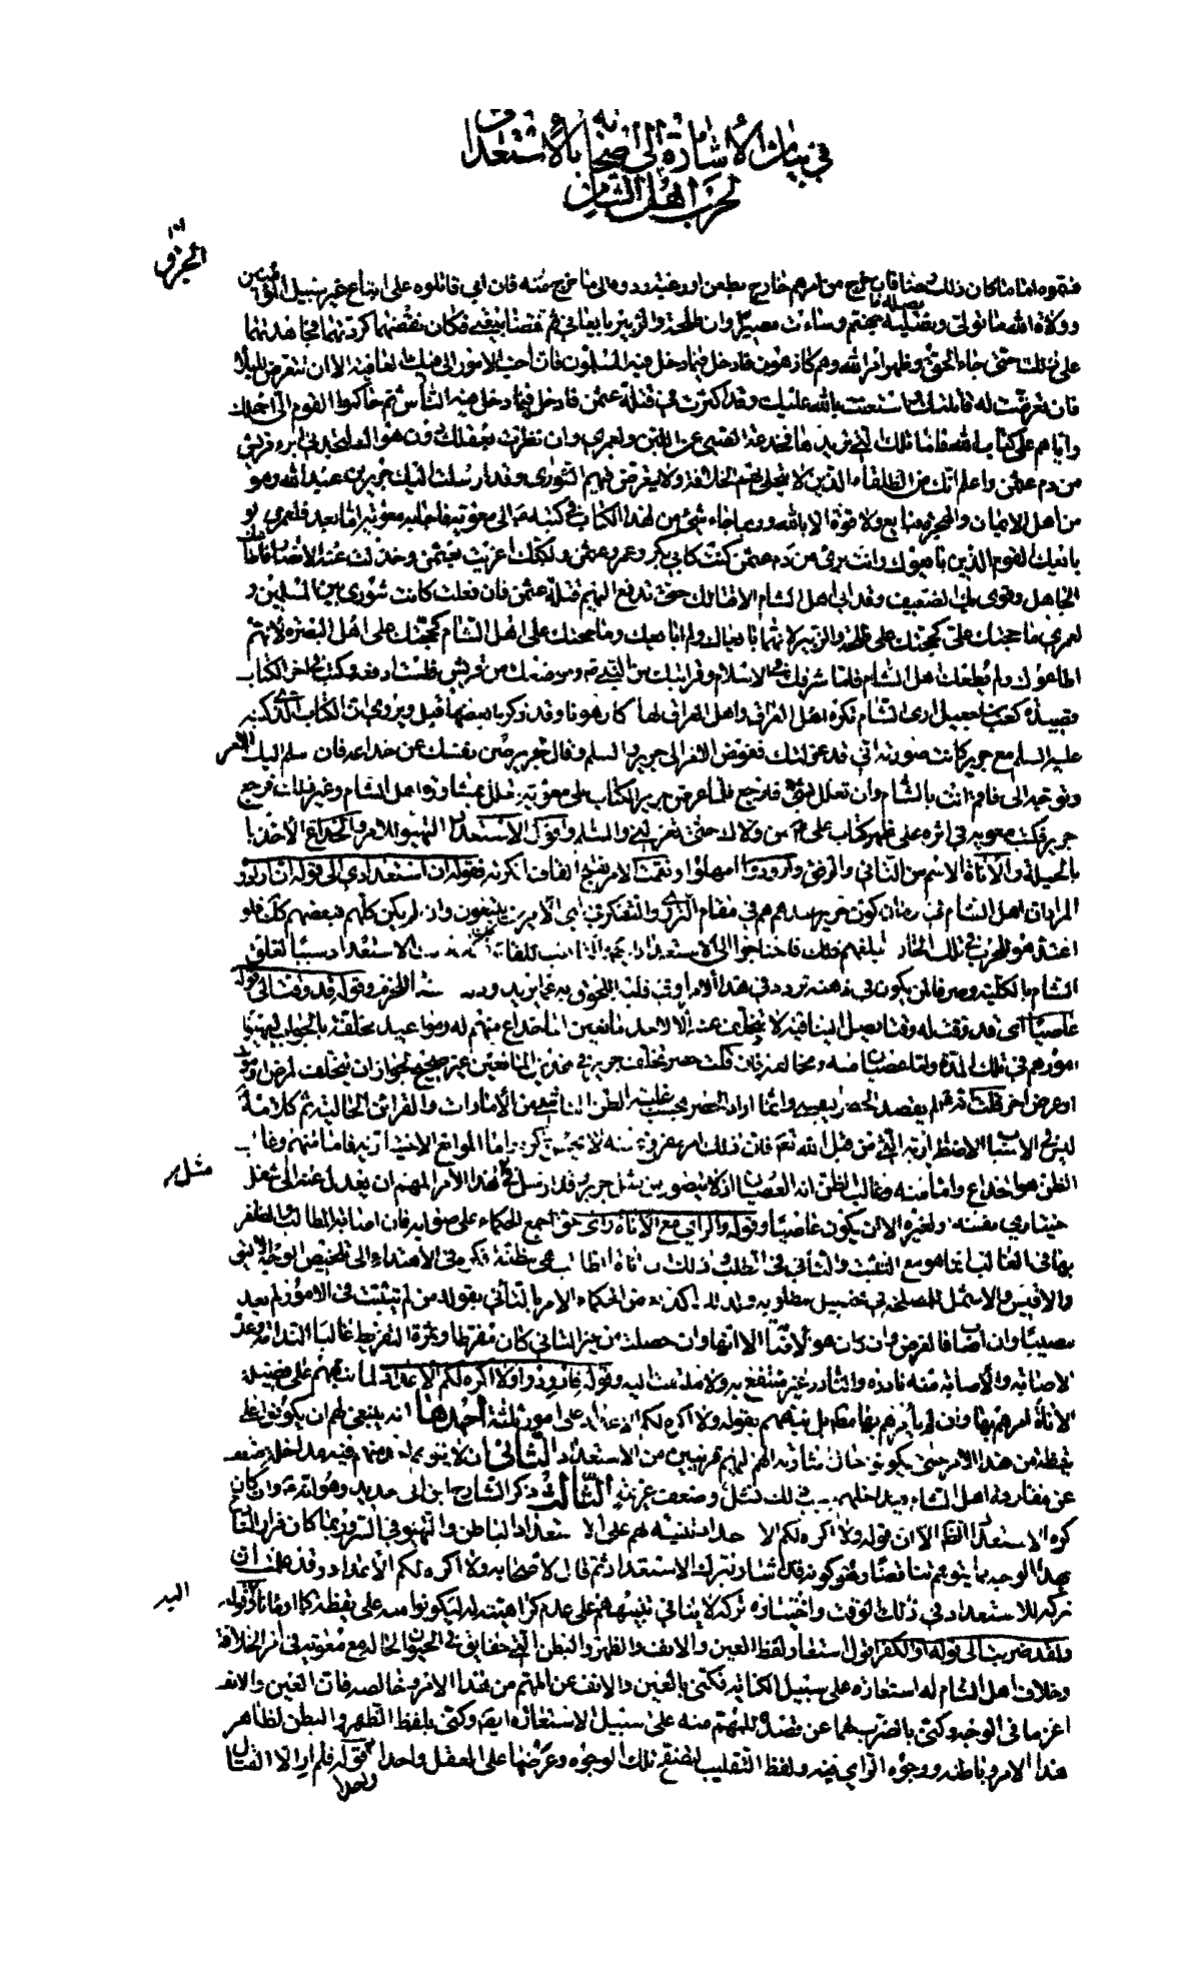 في بيان الأشارة الى اصحابه بالاستعداد
لحرب اهل الشام
الحزو
فسموه اماما كان ذلك رضا فان خرج من امرهم خارج بطعن او رغبة ردوه الى ما خرج منه فان ابى قاتلوه على اتباع غير سبيل المؤمنين
وولاه الله ما تولى ويصليه جهنم وساءت مصيرا وان طلحة والزبير بايعاني ثم نقضا بيعتي فكان نقضهما كردتهما فجاهدتهما
على ذلك حتى جاء الحق وظهر امر الله وهم كارهون فادخل فيما دخل فيه المسلمون فان احب الامور الى فيك العافية الا ان تتعرض للبلاء
فان تعرضت له قاتلتك واستعنت بالله عليك وقد اكثرت في قتلة عثمن فادخل فيما دخل فيه الناس ثم حاكم القوم الى احملك
واياهم على كتاب الله فاما تلك التي تريدها فخدعة الصبي عن اللبن ولعمري وان نظرت بعقلك دون هواك لتجدني ابرء قريش
من دم عثمن واعلم انك من الطلقاء الذين لا يتحلى لهم الخلافة ولا يعرض فيهم الشورى وقد ارسلت اليك جرير بن عبد الله وهو
من اهل الايمان والهجرة فبايع ولا قوة الا بالله وربما جاء شئ من هذا الكتاب في كتبه الى معويه فاجابه معويه اما بعد فلعمري لو
بايعك القوم الذين بايعوك وانت برئ من دم عثمن كنت كابي بكر وعمر وعثمن ولكنك اغريت بعثمن وخذلت عنه الانصار فاطاعك
الجاهل وقوى بك الضعيف وقد ابى اهل الشام الا قتالك حتى تدفع اليهم قتلة عثمن فان فعلت كانت شورى بين المسلمين و
لعمري ما حجتك علي كحجتك على طلحة والزبير لانهما بايعاك ولم ابايعك وما حجتك على اهل الشام كحجتك على اهل البصرة لانهم
اطاعوك ولم يطعك اهل الشام فاما شرفك في الاسلام وقرابتك من النبي وموضعك من قريش فلست ادفعه وكتب في اخر الكتاب
قصيدة كعب بن جعيل ارى الشام تكره اهل العراق واهل العراق لها كارهونا وقد ذكرنا بعضها قبل ويروى ان الكتاب الذي كتبه
عليه السلم مع جرير كانت صورته اني قد عزلتك ففوض الامر الى جرير والسلم وقال لجرير صن نفسك عن خداعه فان سلم اليك الامر
وتوجه الى فاقم انت بالشام وان تعلل بشئ فارجع فلما عرض جرير الكتاب على معويه تعلل بمشاورة اهل الشام وغير ذلك فرجع
جرير فكتب معويه في اثره على ظهر كتاب علي من ولاك حتى تعزلني والسلم واقول الاستعداد التهيؤ للامر والخداع الأخذ
بالحيلة والاناة الاسم من التاني والرفق وارودوا امهلوا ونقمت الامر بفتح القاف انكرته فقوله ان استعدادي الى قوله ان ارادوه
المراد ان اهل الشام في زمان كون جرير عندهم هم في مقام التروي والتفكر في اي الامرين يتبعون وان لم يكن كلهم فبعضهم كذلك فلو
اعتد هو للحرب في تلك الحال لبلغهم ذلك فاحتاجوا الى الاستعداد الاستعداد سببا لغلق
الشام بالكلية وصرفا لمن يكون في ذهنه تردد في هذا الامر او في قلبه اللحوق به عما يريد الحزم وقوله قد وقت الى قوله
عاصيا اى قد وقت له وقتا يصل الينا فيه لا يتخلف عنه الا لاحد مانعين اما خداع منهم له ومواعيد مخلفة بالجواب ليهيئوا
امورهم في تلك المدة واما عصيان منه ومخالفة فان قلت حصر تخلف جرير في هذين المانعين غير صحيح لجواز ان يتخلف لمرض او موت
او غرض اخر قلت انه لم يقصد الحصر اليقيني وانما اراد الحصر بحسب غلبة الظن الناشئة عن الأمارات والقرائن الحالية ثم كلامه
ليس في الاسباب الاضطرارية التي من قبل الله تعالى فان ذلك واما الموانع الاختيارية فاما منهم وغالب
الظن هو الخداع واما منه وغالب الظن انه العصيان اذ لا يتصور من مثل جرير وقد ارسل في هذا الأمر المهم ان يعدل عنه الى شغل
مثل مر
اختياري لنفسه او لغيره الا ان يكون عاصيا وقوله والراي مع الاناة راى حق اجمع الحكماء على صوابه فان اصابة المطالب والظفر
بها في الغالب انما هو مع التثبت والتأني في الطلب وذلك ان اناة الطالب هي مظنة فكره في الاهتداء الى تلخيص الوجه الاليق
والاقيس والاشمل للمصلحة في تحصيل مطلوبه ولذلك اكد بعض الحكماء الامر بالتأني بقوله من لم يتثبت في الامور لم يعد
مصيبا وان اصاب فالغرض وان كان هو الاصابة الا انها وان حصلت من غير التاني كان مفرطا وثمرة التفريط غالبا الندامة وعدم
الاصابة والاصابة منه نادرة والنادر غير منتفع به ولا ملتفت اليه وقوله فارودوا ولا اكره لكم الاعداد لما نبههم على فضيلة
الاناة امرهم بها وان لم يأمرهم بها مطلقا بل نبههم بقوله ولا اكره لكم الاعداد على امور ثلثة احدها انه ينبغي لهم ان يكونوا على
يقظة من هذا الامر حتى يكونوا حال مشاورته اياهم قريبين من الاستعداد الثاني ان لا يتوهم احد منهم فيه مداخلة ضعف
عن مقاومة اهل الشام فيداخلهم بسبب ذلك فشل وضعف عزيمة الثالث ذكر الشارح ابن ابي حديد وهو انه وان كان
كره الاستعداد الظاهر الا ان قوله ولا اكره لكم الاعداد تنبيه لهم على الاستعداد الباطن والتهيؤ في السر وربما كان فرار الشارح
بهذا الوجه مما يتوهم تناقضا وهو كونه قد اشار بترك الاستعداد ثم قال لاصحابه ولا اكره لكم الاعداد وقد علمت ان
تركه للاستعداد في ذلك الوقت واختياره تركه لا ينافي تنبيههم على عدم كراهيته له ليكونوا منه على يقظة كما اومأنا اليه وقوله
اليه
ولقد ضربت الى قوله او الكفر اقول استعار لفظ العين والانف والظهر والبطن التي حقايق في الحيوان لحاله مع معويه في امر الخلافة
وخلاف اهل الشام له استعارة على سبيل الكناية فكنى بالعين والانف عن المهم من هذا الامر وخالصه فان العين والانف
اعز ما في الوجه وكنى بالضرب لهما عن قصده للمهم منه على سبيل الاستعارة ايضا وكنى بلفظ الظهر والبطن لظاهر
هذا الامر وباطنه ووجوه الراي فيه ولفظ التقليب لتصفح تلك الوجوه وعرضها على العقل واحدا واحدا فقوله فلم ار الا القتال